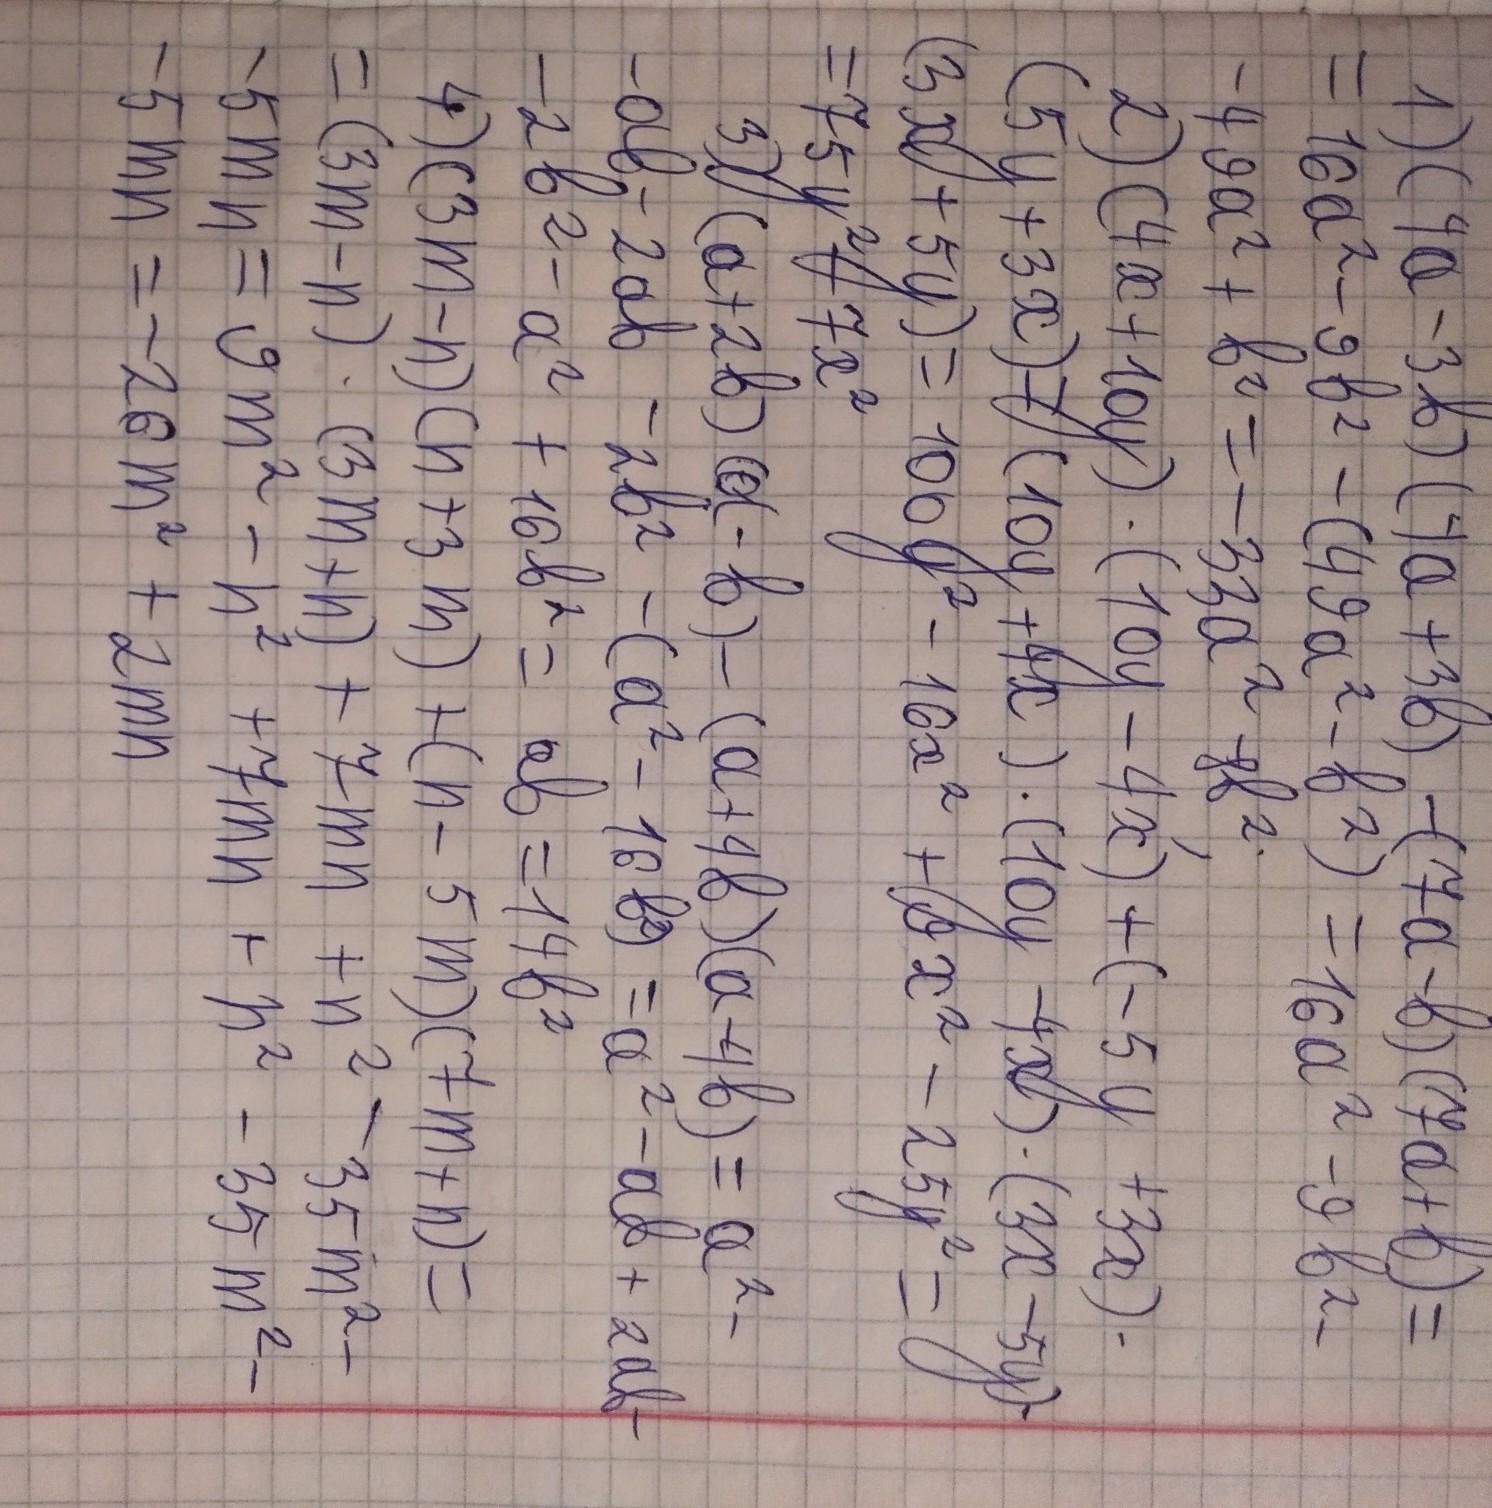 1) (4a - 3b) (4a + 3b) - (7a - b) (7a + b) =
= 16a² - 9b² - (49a² - b²) = 16a² - 9b² -
- 49a² + b² = - 33a² - 8b²;
2) (4x + 10y) · (10y - 4x) + (- 5y + 3x) ·
(5y + 3x) = (10y + 4x) · (10y - 4x) · (3x - 5y) ·
(3x + 5y) = 100y² - 16x² + 9x² - 25y² =
= 75y² - 7x²
3) (a + 2b) (a - b) - (a + 4b) (a - 4b) = a² -
- ab - 2ab - 2b² - (a² - 16b²) = a² - ab + 2ab -
- 2b² - a² + 16b² = ab = 14b²
4) (3m - n) (n + 3m) + (n - 5m) (7m + n) =
= (3m - n) · (3m + n) + 7mn + n² - 35m² -
- 5mn = 9m² - n² + 7mn + n² - 35m² -
- 5mn = - 26m² + 2mn